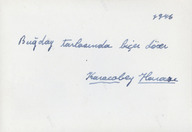 2946
Buğday tarlasında biçer döver
Karacabey Harası